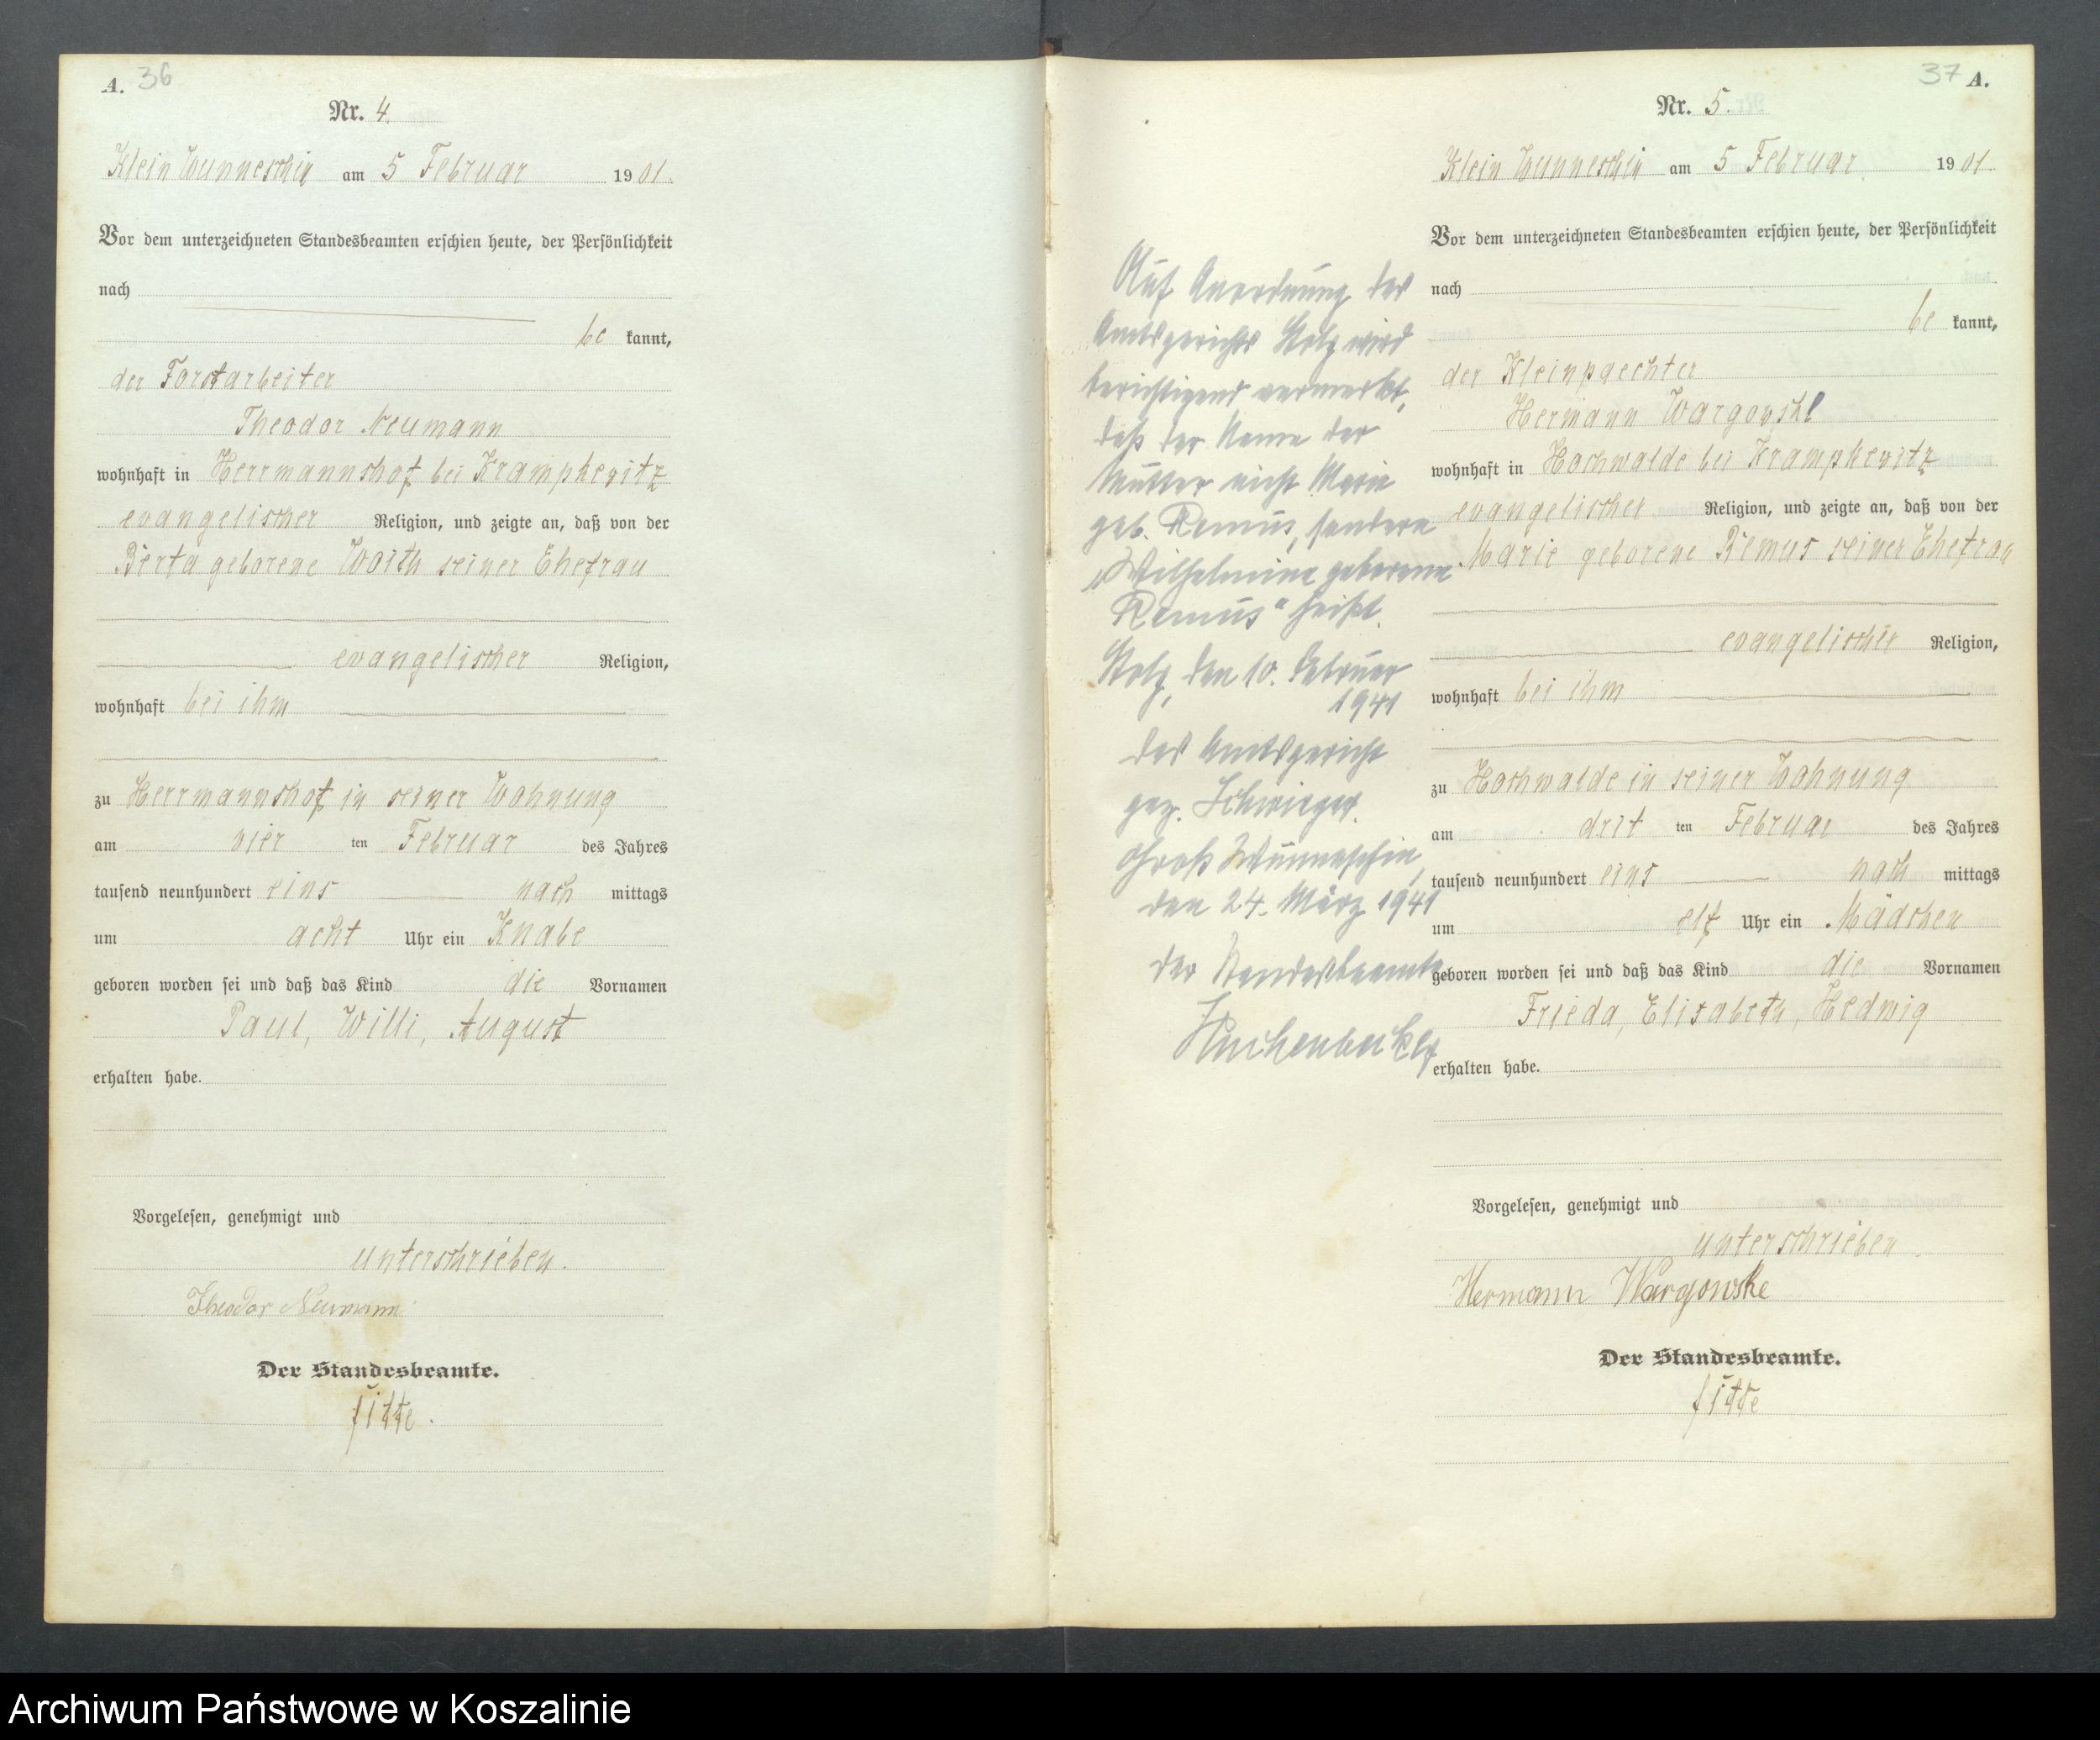 A. 36
Nr. 4.
Klein Wunneschin am 5 Februar 1901.
Vor dem unterzeichneten Standesbeamten erschien heute, der Persönlichkeit
nach
be kannt,
der Forstarbeiter
Theodor Neumann
wohnhaft in Herrmannshof bei Krampkevitz
evangelischer Religion, und zeigte an, daß von der
Berta geborene Woith seiner Ehefrau
evangelischer Religion,
wohnhaft bei ihm
zu Herrmannshof in seiner Wohnung
am vier ten Februar des Jahres
tausend neunhundert eins nach mittags
um acht Uhr ein Knabe
geboren worden sei und daß das Kind die Vornamen
Paul, Willi, August
erhalten habe.
Vorgelesen, genehmigt und
unterschrieben.
Theodor Neumann
Der Standesbeamte.
fitte.
37 A.
Nr. 5.
Klein Wunneschin am 5 Februar 1901.
Vor dem unterzeichneten Standesbeamten erschien heute, der Persönlichkeit
nach
be kannt,
der Kleinpaechter
Hermann Wargowske
wohnhaft in Hochwalde bei Krampkevitz
evangelischer Religion, und zeigte an, daß von der
Marie geborene Remus seiner Ehefrau
evangelischer Religion,
wohnhaft bei ihm
zu Hochwalde in seiner Wohnung
am drit ten Februar des Jahres
tausend neunhundert eins nach mittags
um elf Uhr ein Mädchen
geboren worden sei und daß das Kind die Vornamen
Frieda, Elisabeth, Hedwig
erhalten habe.
Vorgelesen, genehmigt und
unterschrieben.
Hermann Wargowske
Der Standesbeamte.
fitte
Auf Anordnung des
Amtsgerichts Stolp wird
berichtigend vermerkt,
daß der Name der
Mutter nicht Marie
geb. Remus, sondern
„Wilhelmine geborene
Remus" heißt.
Stolp, den 10. Februar
1941
Das Amtsgericht
gez. Schwieger.
Groß Wunneschin,
den 24. März 1941
Der Standesbeamte
Archiwum Państwowe w Koszalinie